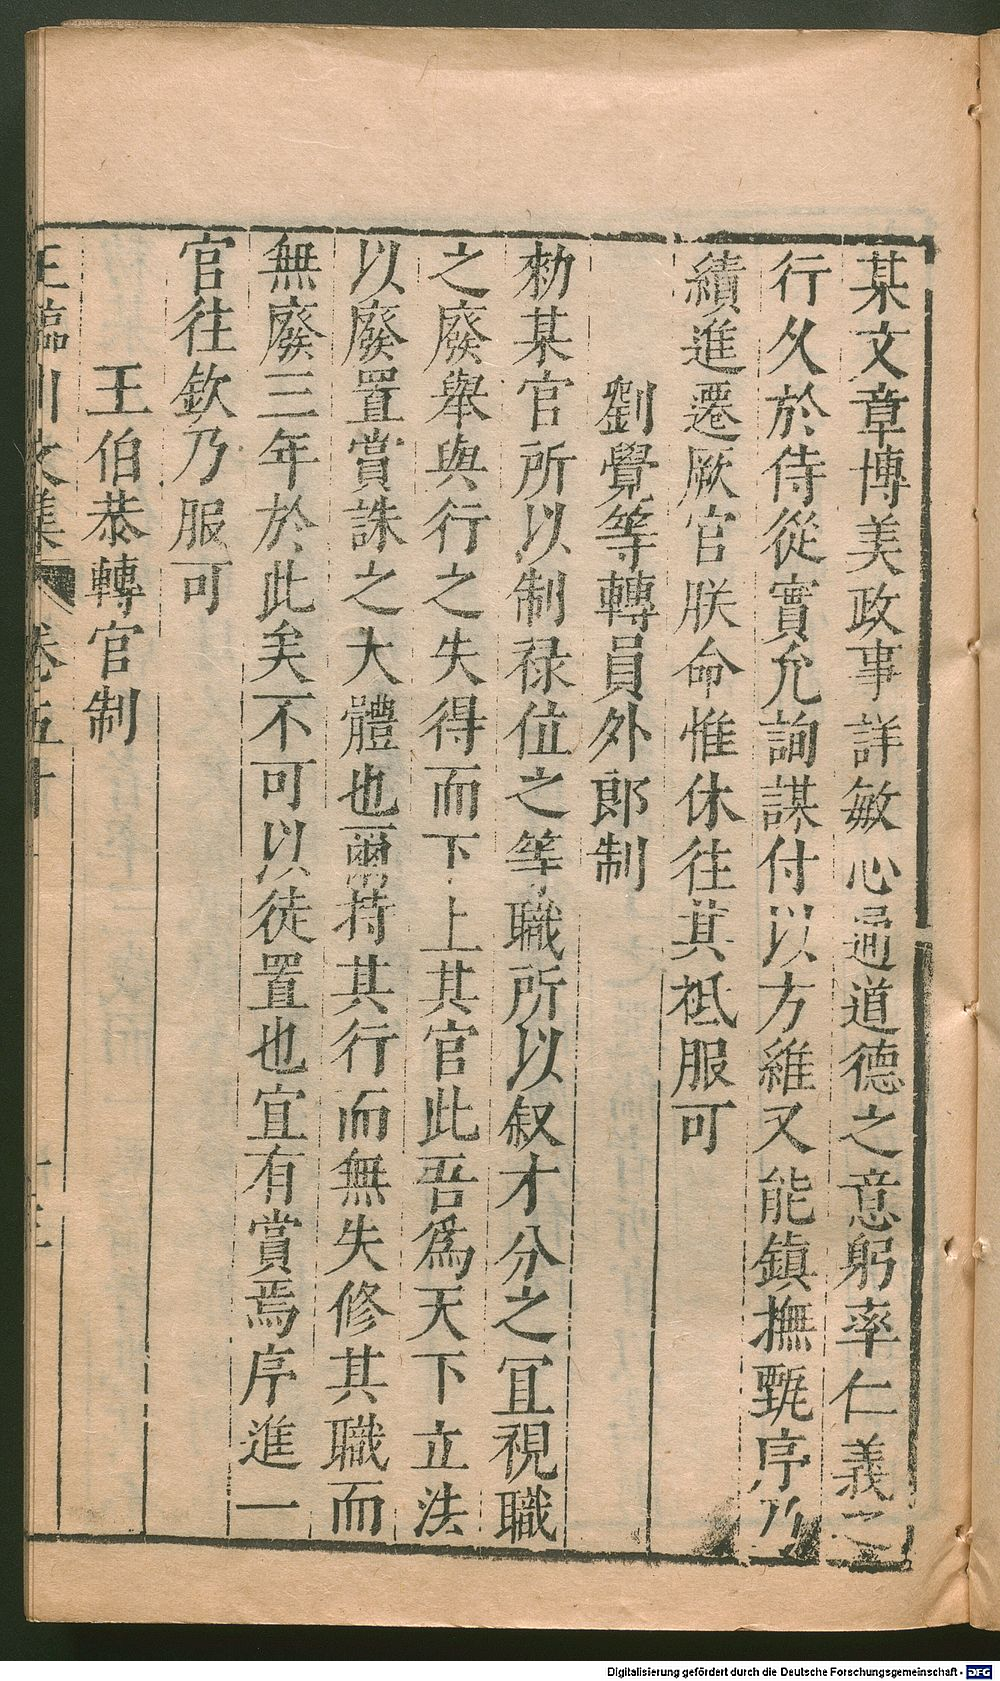 某文章博美政事詳敏心通道德之意躬率仁義之
行久於侍從實允詢謀付以方維又能鎮撫甄序乃
績進遷厥官朕命惟休往其祗服可
劉覺等轉員外郎制
勑某官所以制禄位之等職所以叙才分之冝視職
之廢舉與行之失得而下上其官此吾爲天下立法
以廢置賞誅之大體也爾持其行而無失修其職而
無廢三年於此矣不可以徒置也宜有賞焉序進一
官往欽乃服可
王伯恭轉官制
王臨川文集 卷五十
Digitalisierung gefördert durch die Deutsche Forschungsgemeinschaft - DFG